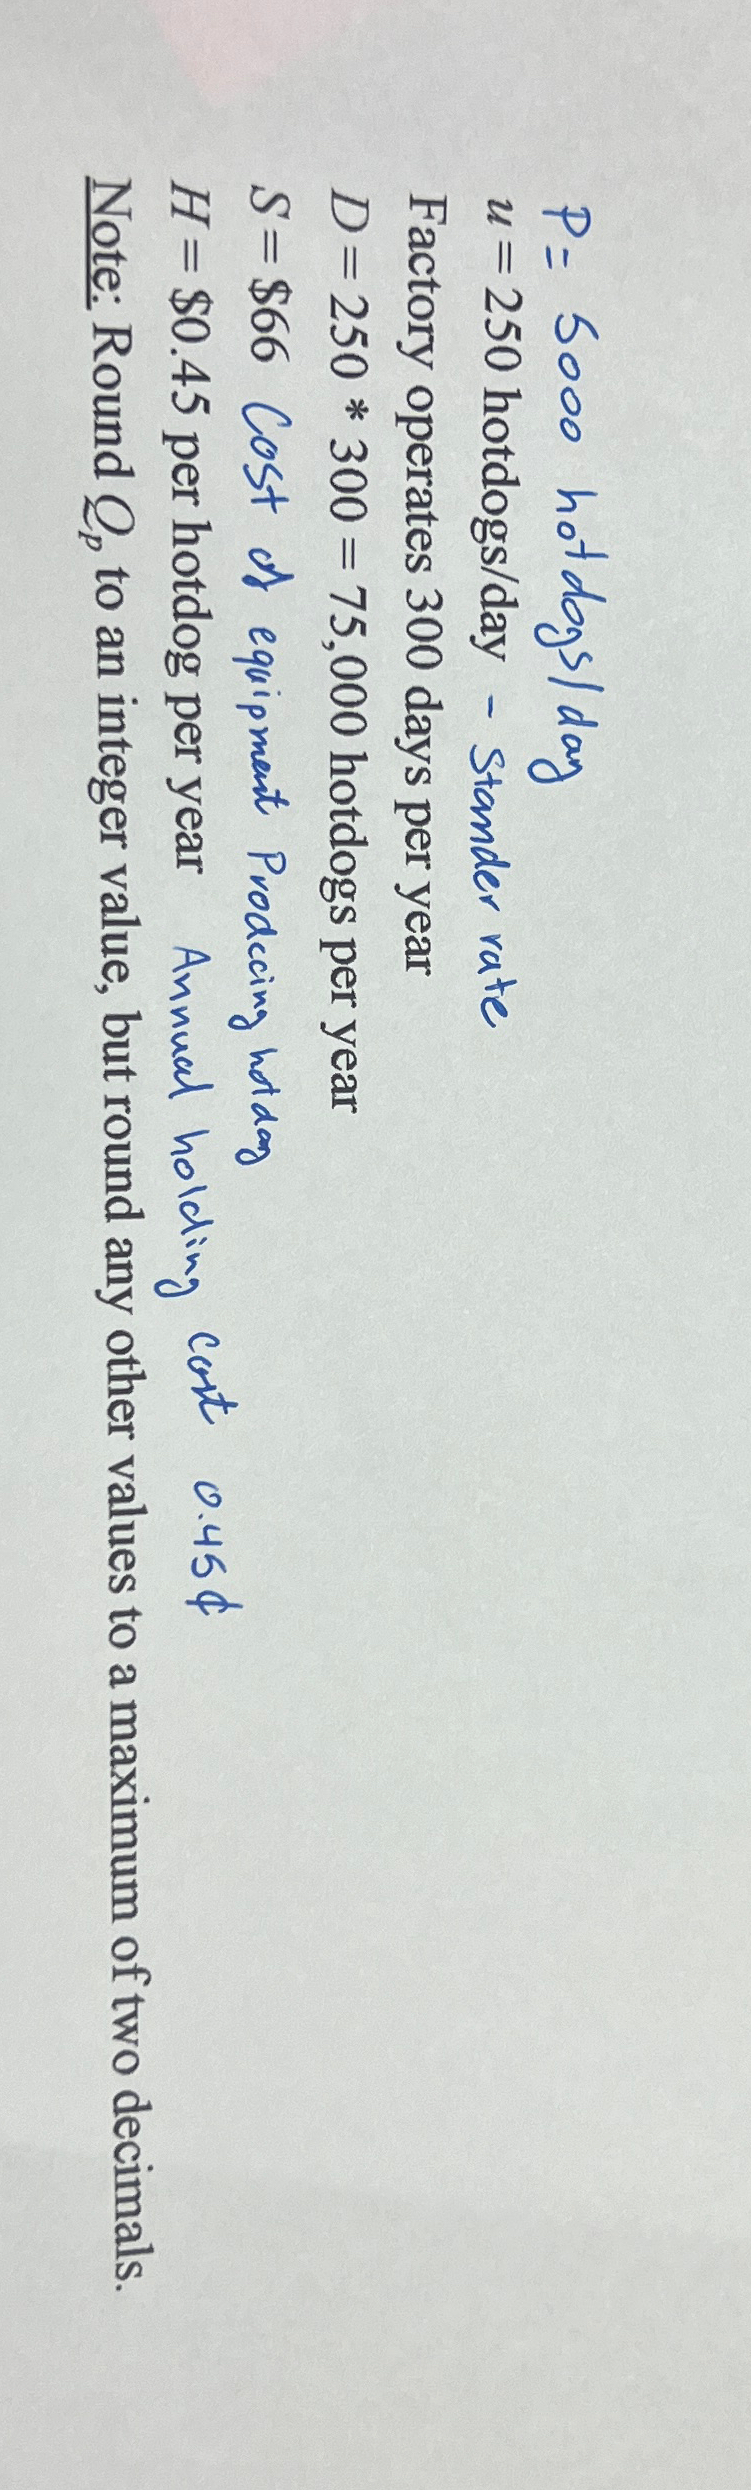 P = 5000 hotdogs/day
u = 250 hotdogs/day - Stander rate
Factory operates 300 days per year
D = 250 * 300 = 75,000 hotdogs per year
S = $66 Cost of equipment Producing hotdog
H = $0.45 per hotdog per year Annual holding cost 0.45¢
Note: Round Qp to an integer value, but round any other values to a maximum of two decimals.